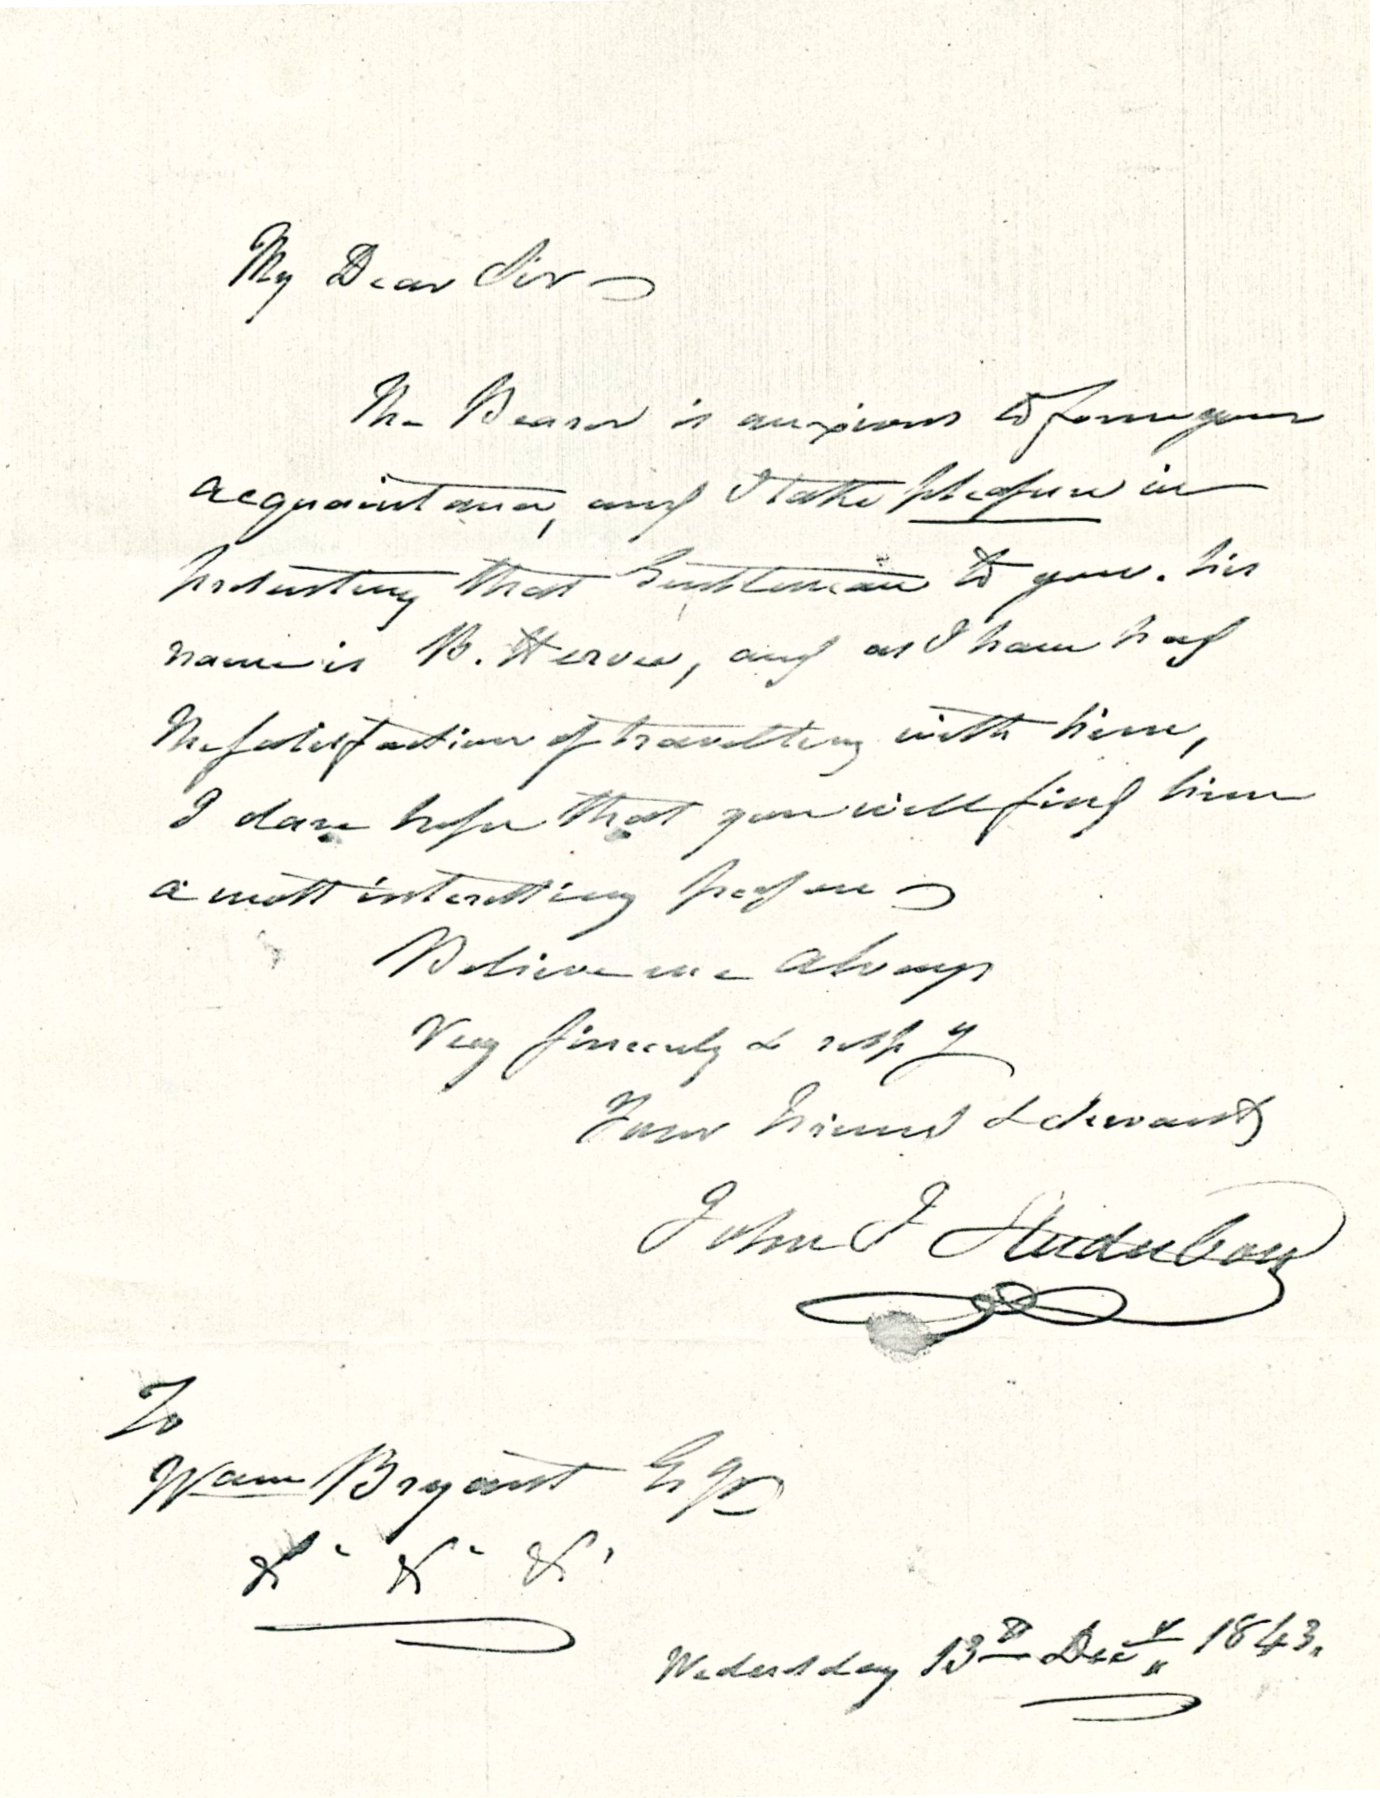 My Dear Sir
The Bearer is anxious to form your
acquaintance, and I take pleasure in
presenting that Gentleman to you. his
name is B. Hervee, and as I have had
the satisfaction of travelling with him,
I dare hope that you will find him
a most interesting person
Believe me always
Very sincerely & respy
Your Friend & Servant
John J Audubon
To
Wam Bryant Esqr
&c &c &c
Wednesday 13th Decr 1843.